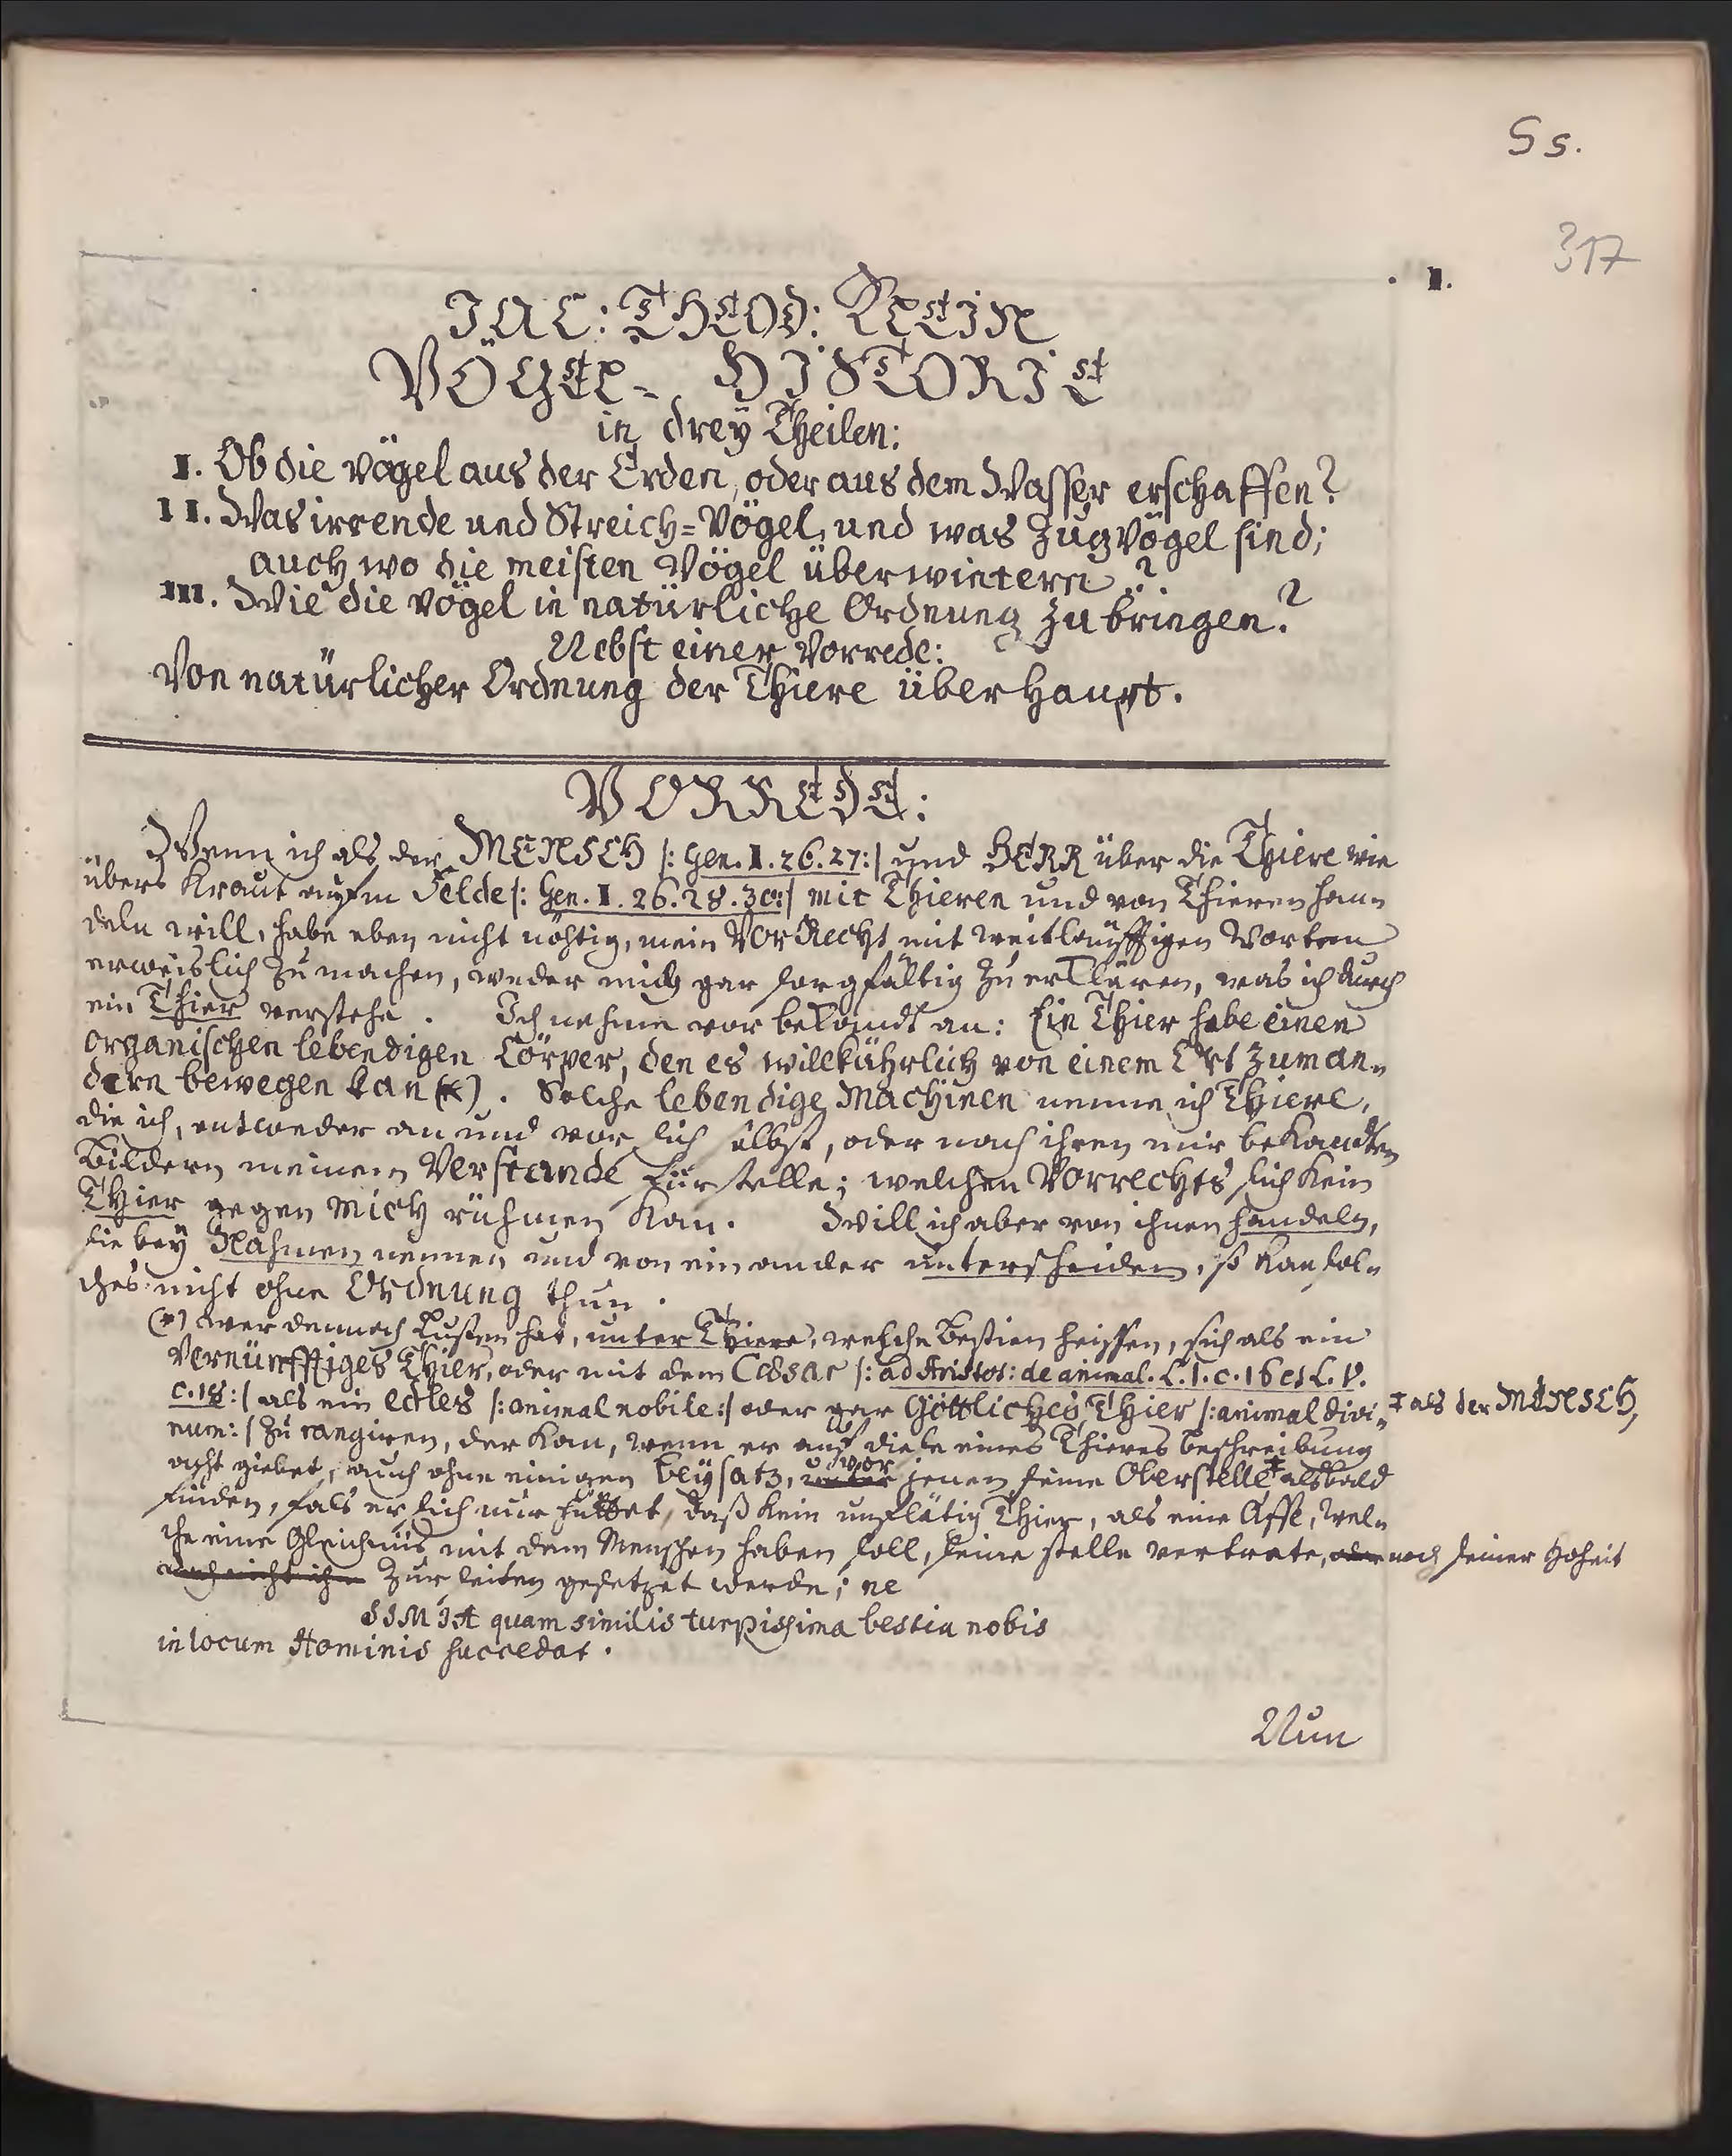 Ss.
317
I.
JAC: THEOD: KLEIN
VÖGEL- HISTORIE
in drey Theilen:
I. Ob die Vögel aus der Erden, oder aus dem Wasser erschaffen?
II. Was irrende und Streich=Vögel, und was Zugvögel sind;
auch wo die meisten Vögel überwintern?
III. Wie die Vögel in natürliche Ordnung zu bringen?
Nebst einer Vorrede:
Von natürlicher Ordnung der Thiere überhaupt.
VORREDE:
Wenn ich als der MENSCH |: Gen. I. 26. 27:| und HERR über die Thiere wie
übers Kraut aufm Felde |: Gen. I. 26. 28. 30:| mit Thieren und von Thieren han=
deln will, habe eben nicht nöhtig, mein VorRecht mit weitläufftigen Worten
erweislich zu machen, weder mich gar sorgfältig zu erklären, was ich durch
ein Thier verstehe. Ich nehme vor bekandt an: Ein Thier habe einen
organischen lebendigen Cörper, den es willkührlich von einem Ort zum an=
dern bewegen kan (*). Solche lebendige Machinen nenne ich Thiere,
die ich, entweder an und vor sich selbst, oder nach ihren mir bekandten
Bildern meinem Verstande fürstelle; welchen Vorrechts sich kein
Thier gegen mich rühmen kan. Will ich aber von ihnen handeln,
sie bey Nahmen nennen und von ein ander unterscheiden, so kan sol=
ches nicht ohne Ordnung thun.
(*) Wer dennoch Lusten hat, unter Thiere, welche Bestien heissen, sich als ein
Vernünfftiges Thier, oder mit dem Cæsar |: ad Aristot: de animal. L. I. c. 16 et L. V.
c. 18:| als ein edles |: animal nobile:| oder gar Göttliches Thier |: animal divi=
num:| zu rangiren, der kan, wenn er auf diese eines Thieres Beschreibung
acht giebet, auch ohne einigen Beysatz, unter vor jenen seine Oberstelle ‡ alsbald
‡ als der MENSCH,
finden, fals er sich nur hüttet, daß kein unflätig Thier, als eine Affe, wel=
che eine Gleichnüs mit dem Menschen haben soll, seine stelle vertrate, oder noch seiner Hoheit
auch nicht ihm zur seiten gesetzet werde; ne
SIMIA quam similis turpissima bestia nobis
in locum Hominis succedat.
Nun